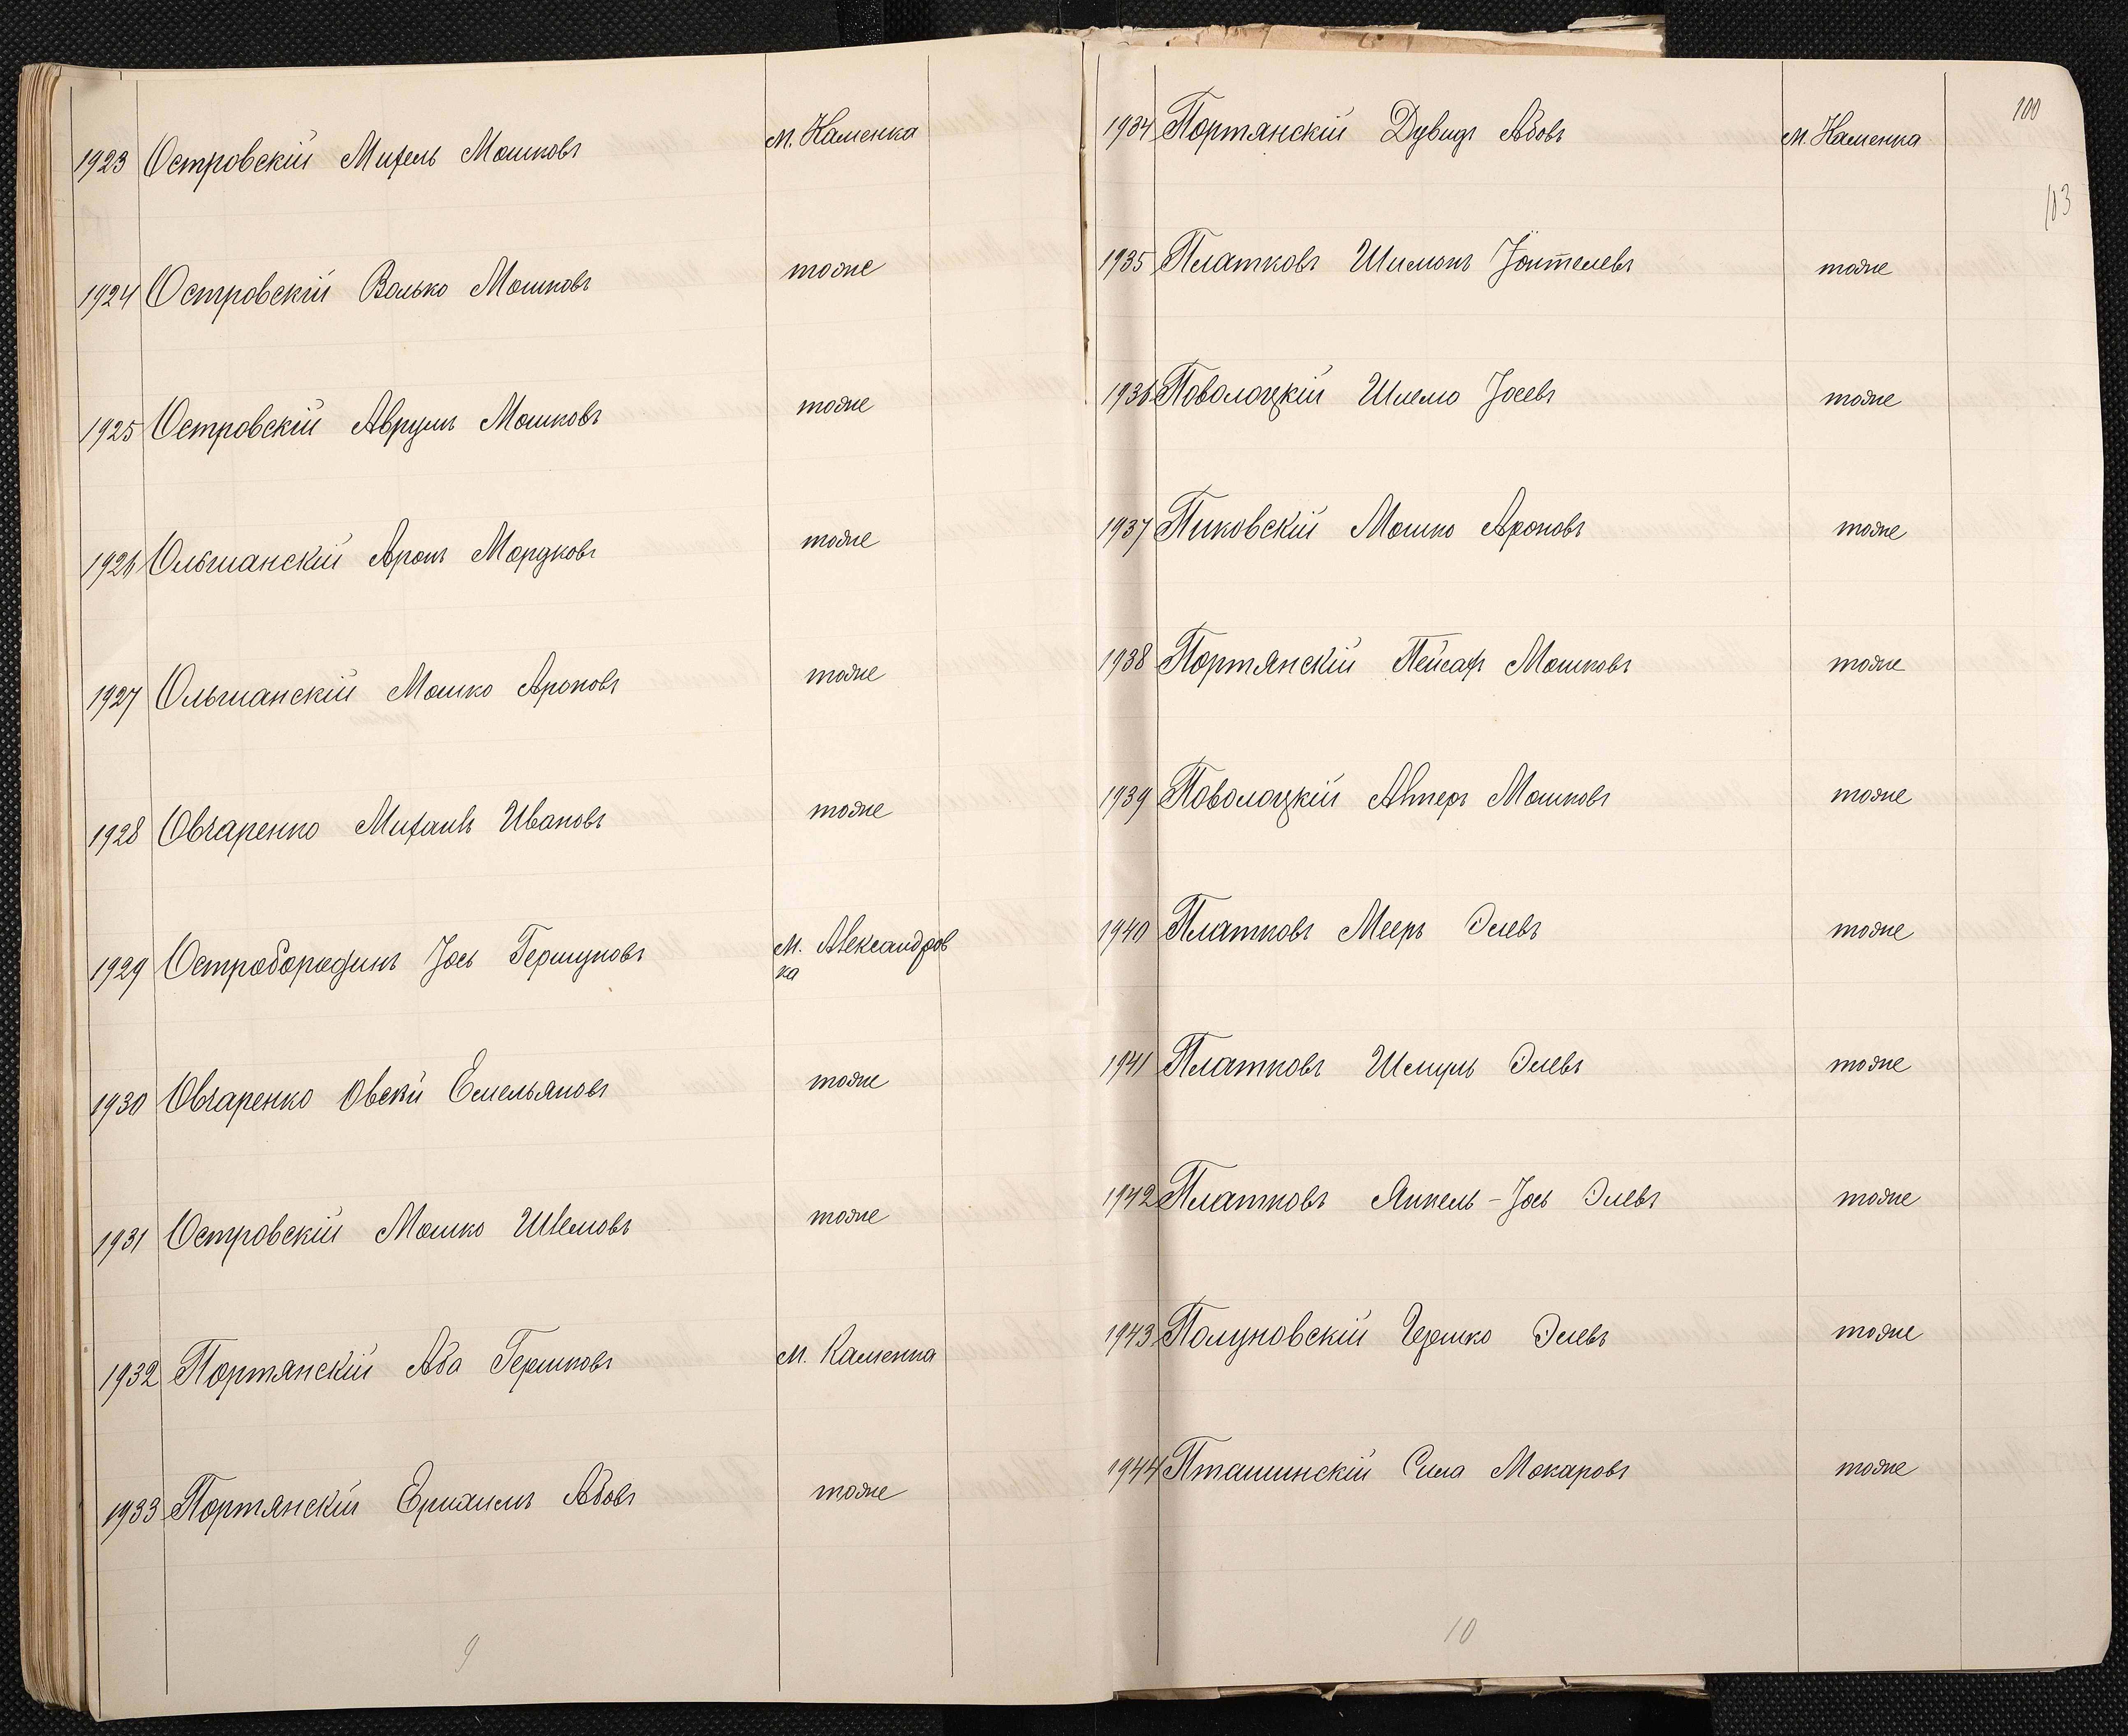 1923 Островскій Михель Мошковъ м. Каменка
1924 Островскій Волько Мошковъ тоже
1925 Островскій Аврумъ Мошковъ тоже
1926 Ольшанскій Аронъ Мордковъ тоже
1927 Ольшанскій Мошко Ароновъ тоже
1928 Овчаренко Михаилъ Ивановъ тоже
1929 Остробородинъ Іось Гершуновъ м. Александров
ка
1930 Овчаренко Овсѣй Емельяновъ тоже
1931 Островскій Мошко Шлемовъ тоже
1932 Портянскій Аба Гершковъ м. Каменка
1933 Портянскій Ерихимъ Абовъ тоже
9
100
103
1934 Портянскій Дувидъ Абовъ м. Каменка
1935 Платковъ Шимонъ Іойтелевъ тоже
1936 Поволоцкій Шлемо Іосевъ тоже
1937 Пиковскій Мошко Ароновъ тоже
1938 Портянскій Пейсахъ Мошковъ тоже
1939 Поволоцкій Алтеръ Мошковъ тоже
1940 Платковъ Мееръ Элевъ тоже
1941 Платковъ Шмуль Элевъ тоже
1942 Платковъ Янкель-Іось Элевъ тоже
1943 Полуновскій Гершко Элевъ тоже
1944 Пташинскій Сила Макаровъ тоже
10